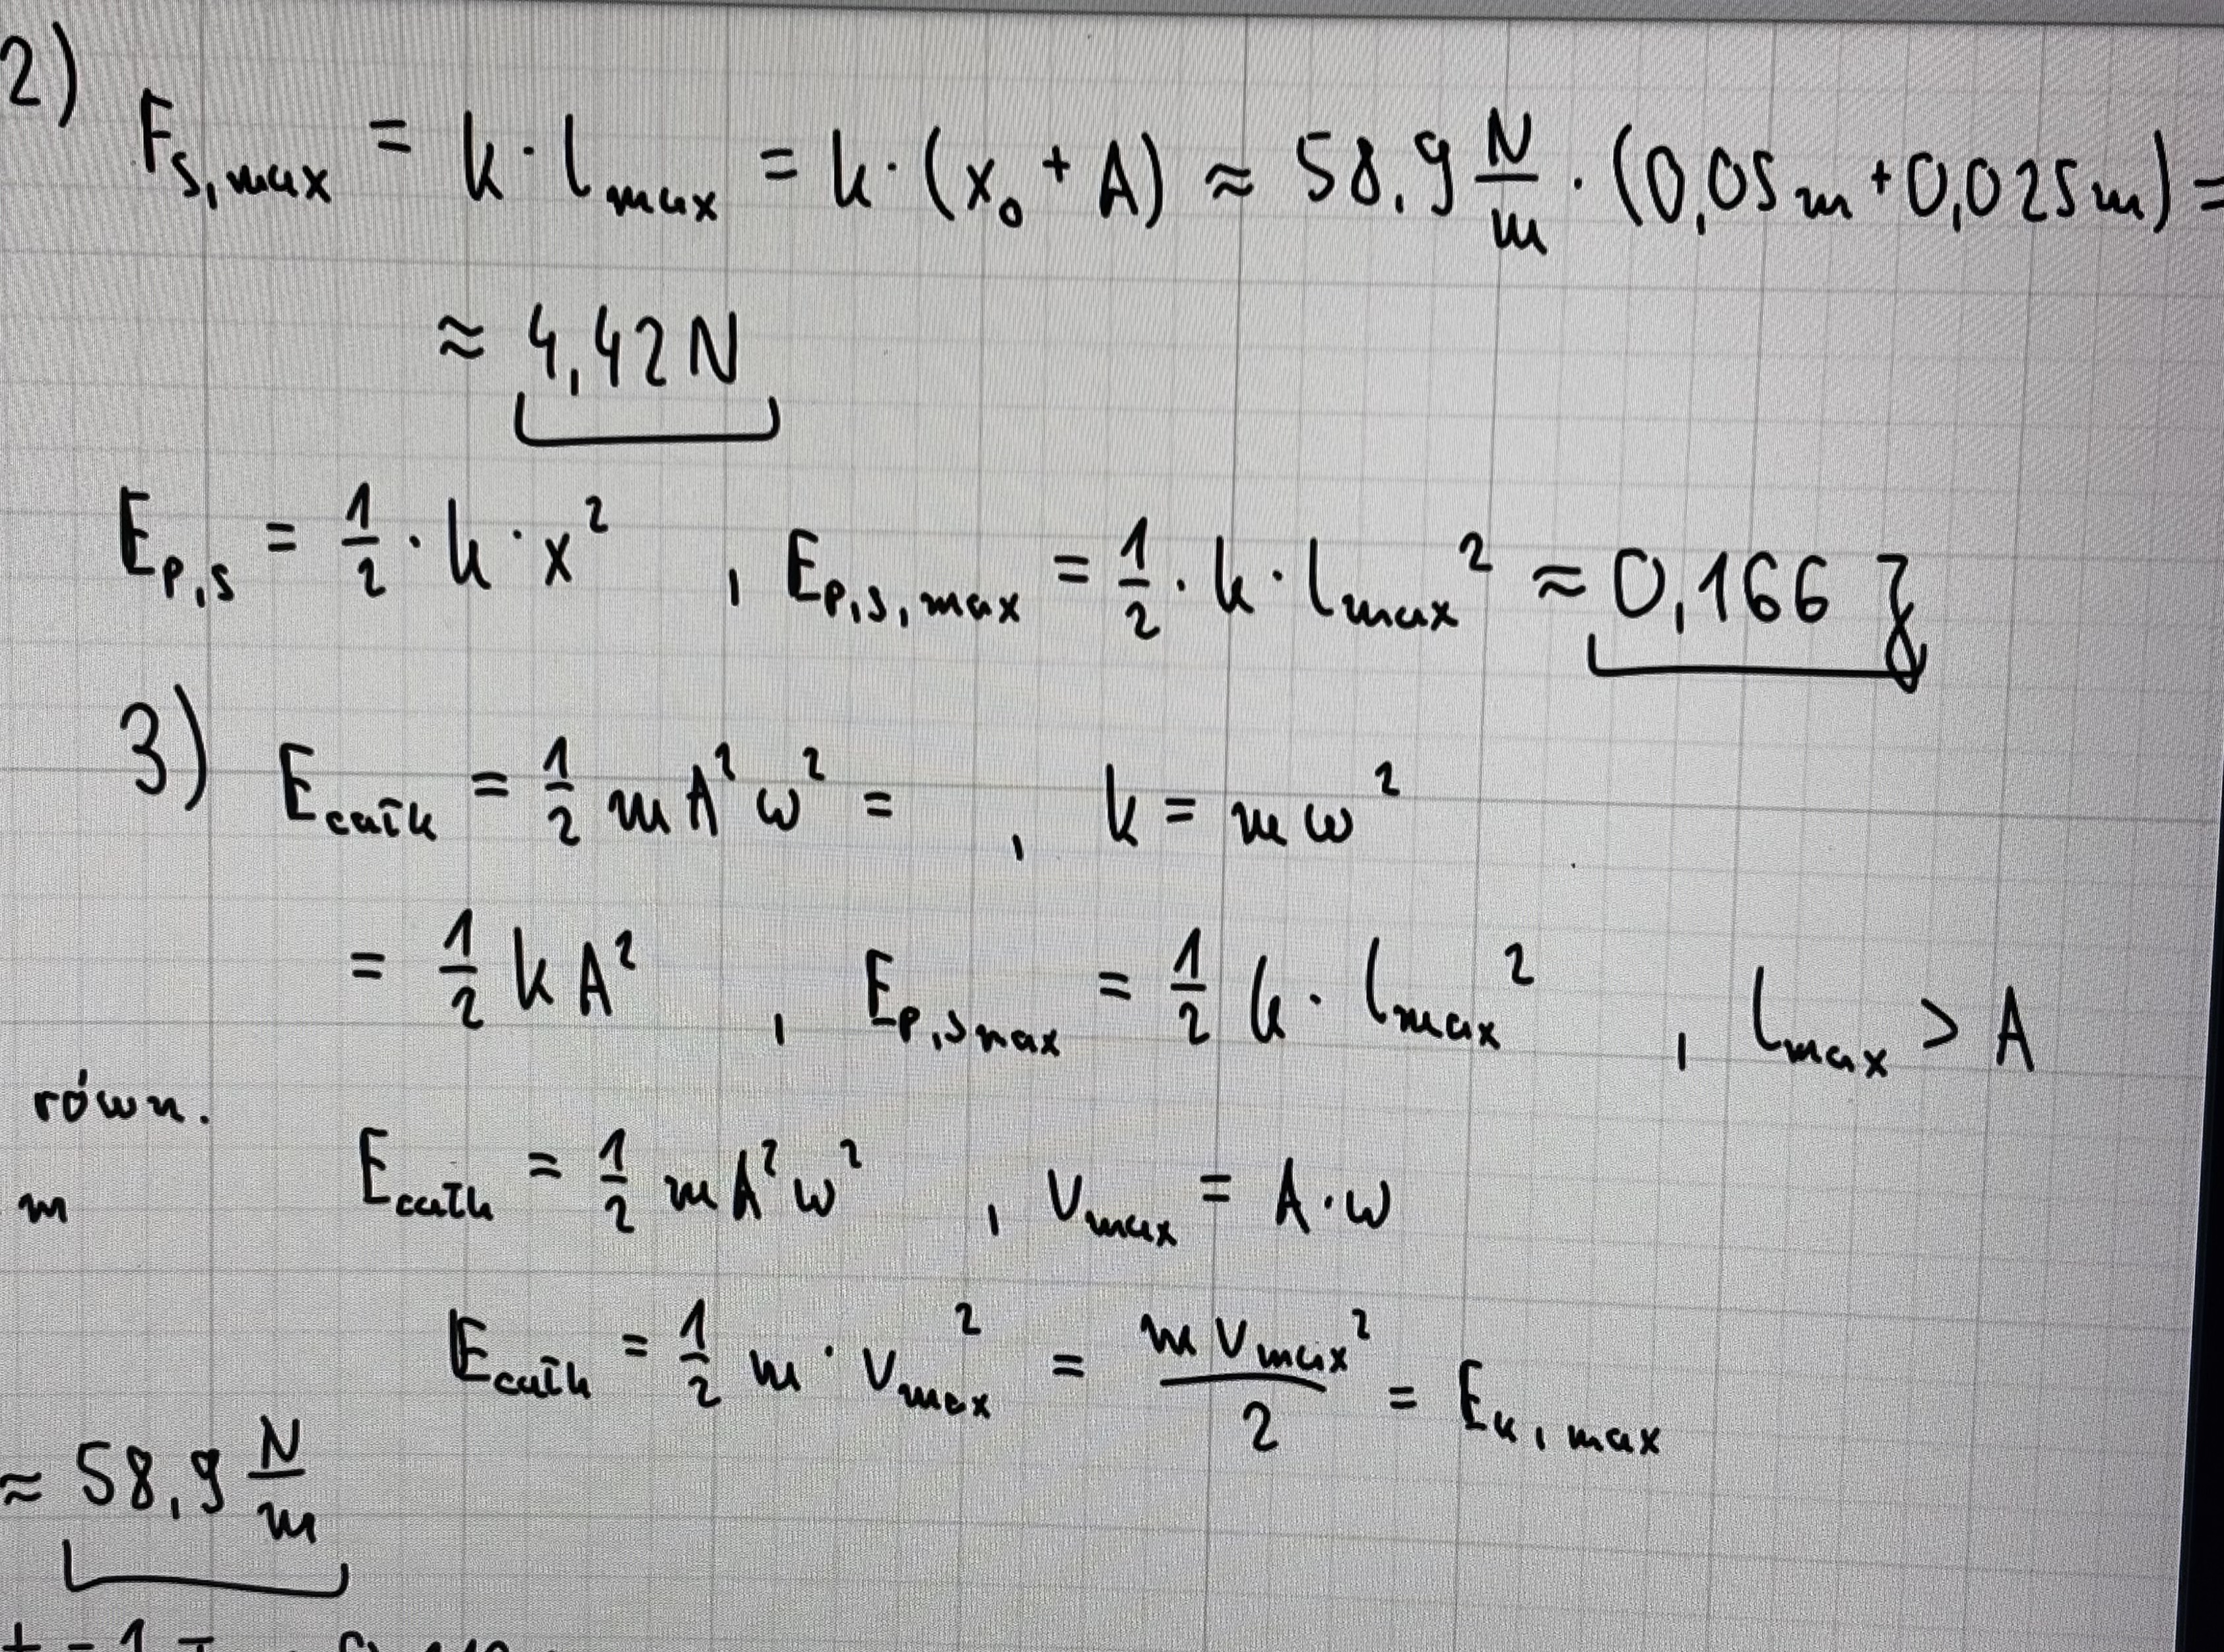 2)
F_s,max = k · l_max = k · (x₀ + A) ≈ 58,9 N/m · (0,05 m + 0,025 m) =
≈ 4,42 N
E_p,s = 1/2 · k · x² , E_p,s,max = 1/2 · k · l_max² ≈ 0,166 J
3) E_całk = 1/2 m A² ω² = , k = m ω²
= 1/2 k A² , E_p,s max = 1/2 k · l_max² , l_max > A
równ.
E_całk = 1/2 m A² ω² , v_max = A · ω
m
E_całk = 1/2 m · v_max² = m v_max²/2 = E_k,max
≈ 58,9 N/m